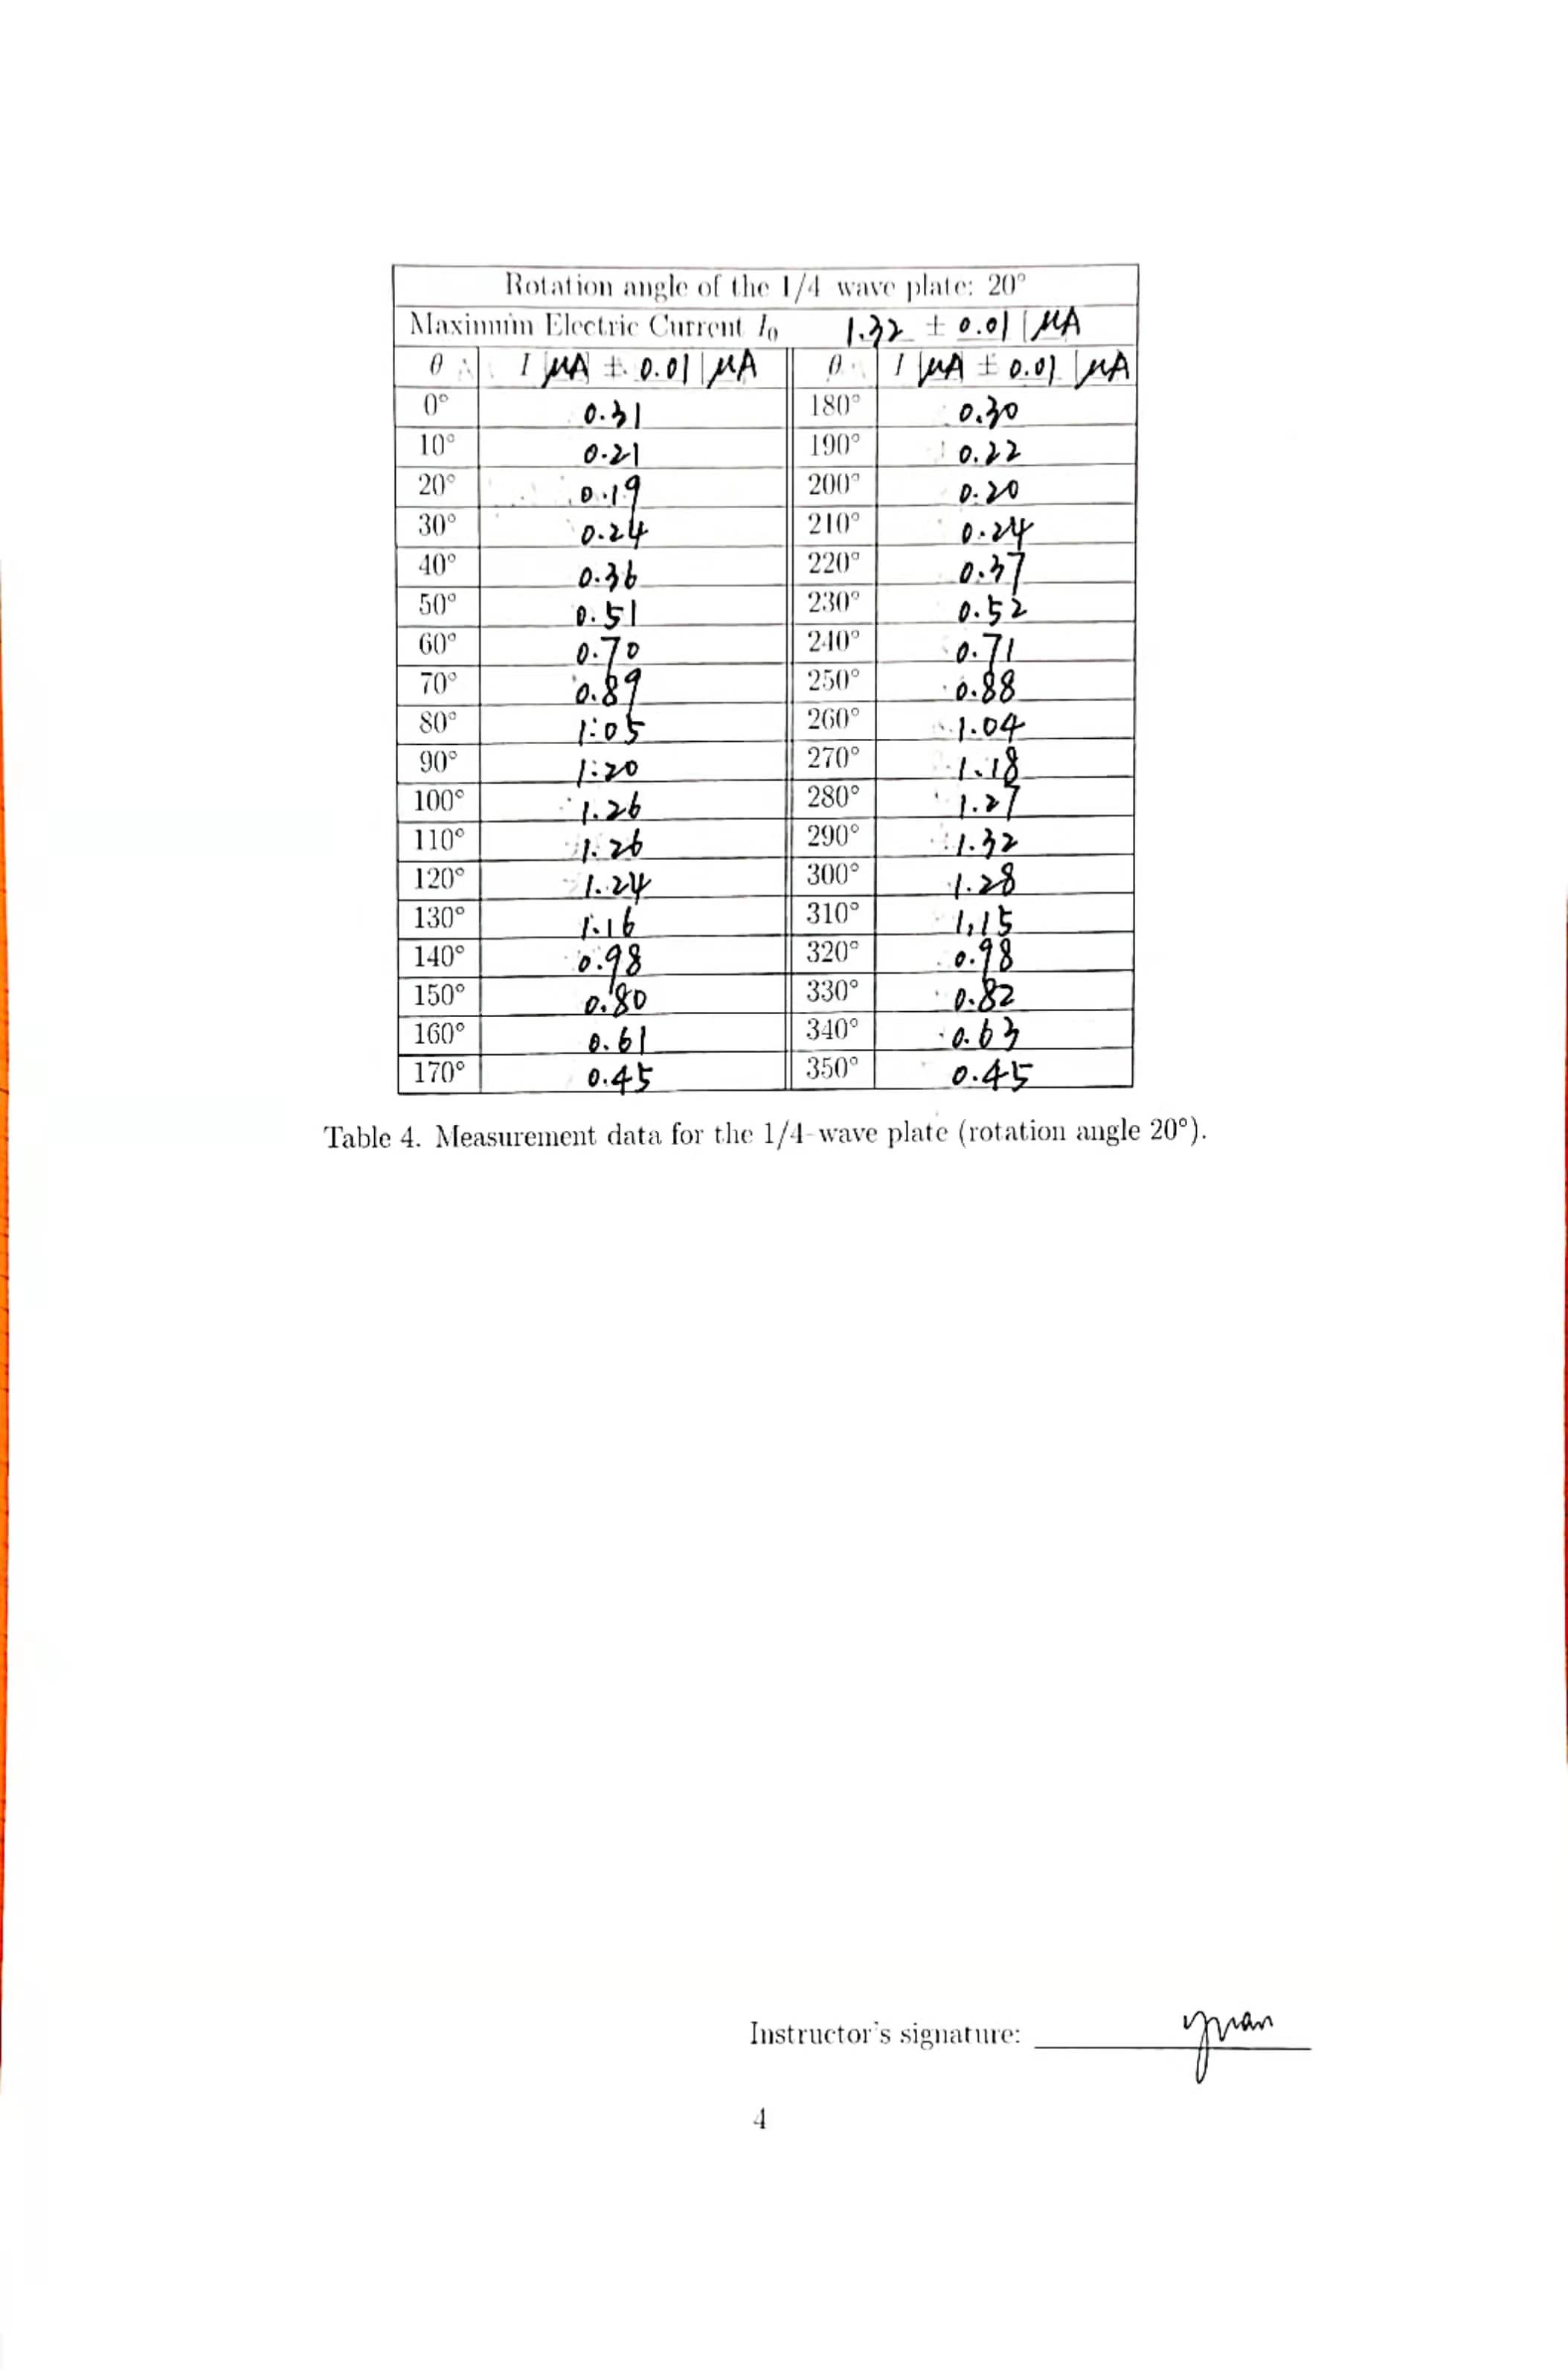 Rotation angle of the 1/4 wave plate: 20°
Maximum Electric Current I₀ 1.32 ± 0.01 μA
θ I μA ± 0.01 μA θ I μA ± 0.01 μA
0° 0.31 180° 0.30
10° 0.21 190° 0.22
20° 0.19 200° 0.20
30° 0.24 210° 0.24
40° 0.36 220° 0.37
50° 0.51 230° 0.52
60° 0.70 240° 0.71
70° 0.89 250° 0.88
80° 1.05 260° 1.04
90° 1.20 270° 1.18
100° 1.26 280° 1.27
110° 1.26 290° 1.32
120° 1.24 300° 1.28
130° 1.16 310° 1.15
140° 0.98 320° 0.98
150° 0.80 330° 0.82
160° 0.61 340° 0.63
170° 0.45 350° 0.45
Table 4. Measurement data for the 1/4-wave plate (rotation angle 20°).
Instructor's signature:
4